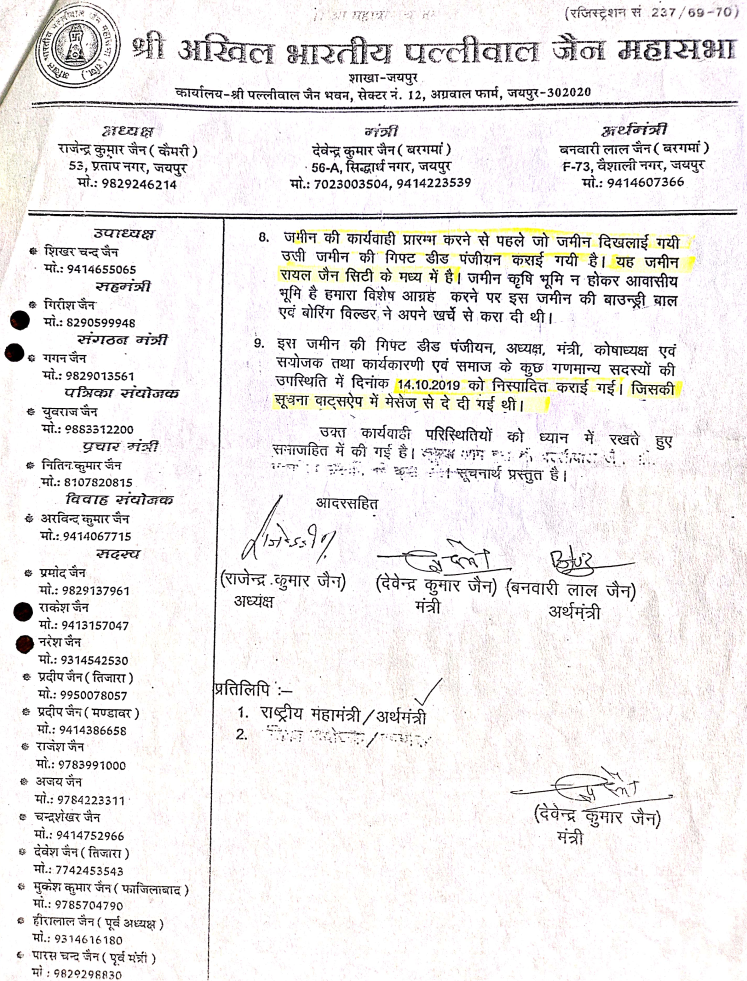 (रजिस्ट्रेशन सं. 237/69-70)
श्री अखिल भारतीय पल्लीवाल जैन महासभा
शाखा-जयपुर
कार्यालय-श्री पल्लीवाल जैन भवन, सेक्टर नं. 12, अग्रवाल फार्म, जयपुर-302020
अध्यक्ष
राजेन्द्र कुमार जैन ( कैमरी )
53, प्रताप नगर, जयपुर
मो.: 9829246214
मंत्री
देवेन्द्र कुमार जैन ( बरगमां )
56-A, सिद्धार्थ नगर, जयपुर
मो.: 7023003504, 9414223539
अर्थमंत्री
बनवारी लाल जैन ( बरगमां )
F-73, वैशाली नगर, जयपुर
मो.: 9414607366
उपाध्यक्ष
शिखर चन्द जैन
मो.: 9414655065
सहमंत्री
गिरीश जैन
मो.: 8290599948
संगठन मंत्री
गगन जैन
मो.: 9829013561
पत्रिका संयोजक
युवराज जैन
मो.: 9883312200
प्रचार मंत्री
नितिन कुमार जैन
मो.: 8107820815
विवाह संयोजक
अरविन्द कुमार जैन
मो.: 9414067715
सदस्य
प्रमोद जैन
मो.: 9829137961
राकेश जैन
मो.: 9413157047
नरेश जैन
मो.: 9314542530
प्रदीप जैन ( तिजारा )
मो.: 9950078057
प्रदीप जैन ( मण्डावर )
मो.: 9414386658
राजेश जैन
मो.: 9783991000
अजय जैन
मो.: 9784223311
चन्द्रशेखर जैन
मो.: 9414752966
देवेश जैन ( तिजारा )
मो.: 7742453543
मुकेश कुमार जैन ( फाजिलाबाद )
मो.: 9785704790
हीरालाल जैन ( पूर्व अध्यक्ष )
मो.: 9314616180
पारस चन्द जैन ( पूर्व मंत्री )
मो : 9829298830
8. जमीन की कार्यवाही प्रारम्भ करने से पहले जो जमीन दिखलाई गयी
उसी जमीन की गिफ्ट डीड पंजीयन कराई गयी है। यह जमीन
रायल जैन सिटी के मध्य में है। जमीन कृषि भूमि न होकर आवासीय
भूमि है हमारा विशेष आग्रह करने पर इस जमीन की बाउन्ड्री बाल
एवं बोरिंग विल्डर ने अपने खर्चे से करा दी थी।
9. इस जमीन की गिफ्ट डीड पंजीयन, अध्यक्ष, मंत्री, कोषाध्यक्ष एवं
सयोजक तथा कार्यकारणी एवं समाज के कुछ गणमान्य सदस्यों की
उपस्थिति में दिनांक 14.10.2019 को निस्पादित कराई गई। जिसकी
सूचना वाट्सऐप में मेसेज से दे दी गई थी।
उक्त कार्यवाही परिस्थितियों को ध्यान में रखते हुए
समाजहित में की गई है।
सूचनार्थ प्रस्तुत है।
आदरसहित
(राजेन्द्र कुमार जैन) (देवेन्द्र कुमार जैन) (बनवारी लाल जैन)
अध्यक्ष मंत्री अर्थमंत्री
प्रतिलिपि :–
1. राष्ट्रीय महामंत्री/अर्थमंत्री
2.
(देवेन्द्र कुमार जैन)
मंत्री